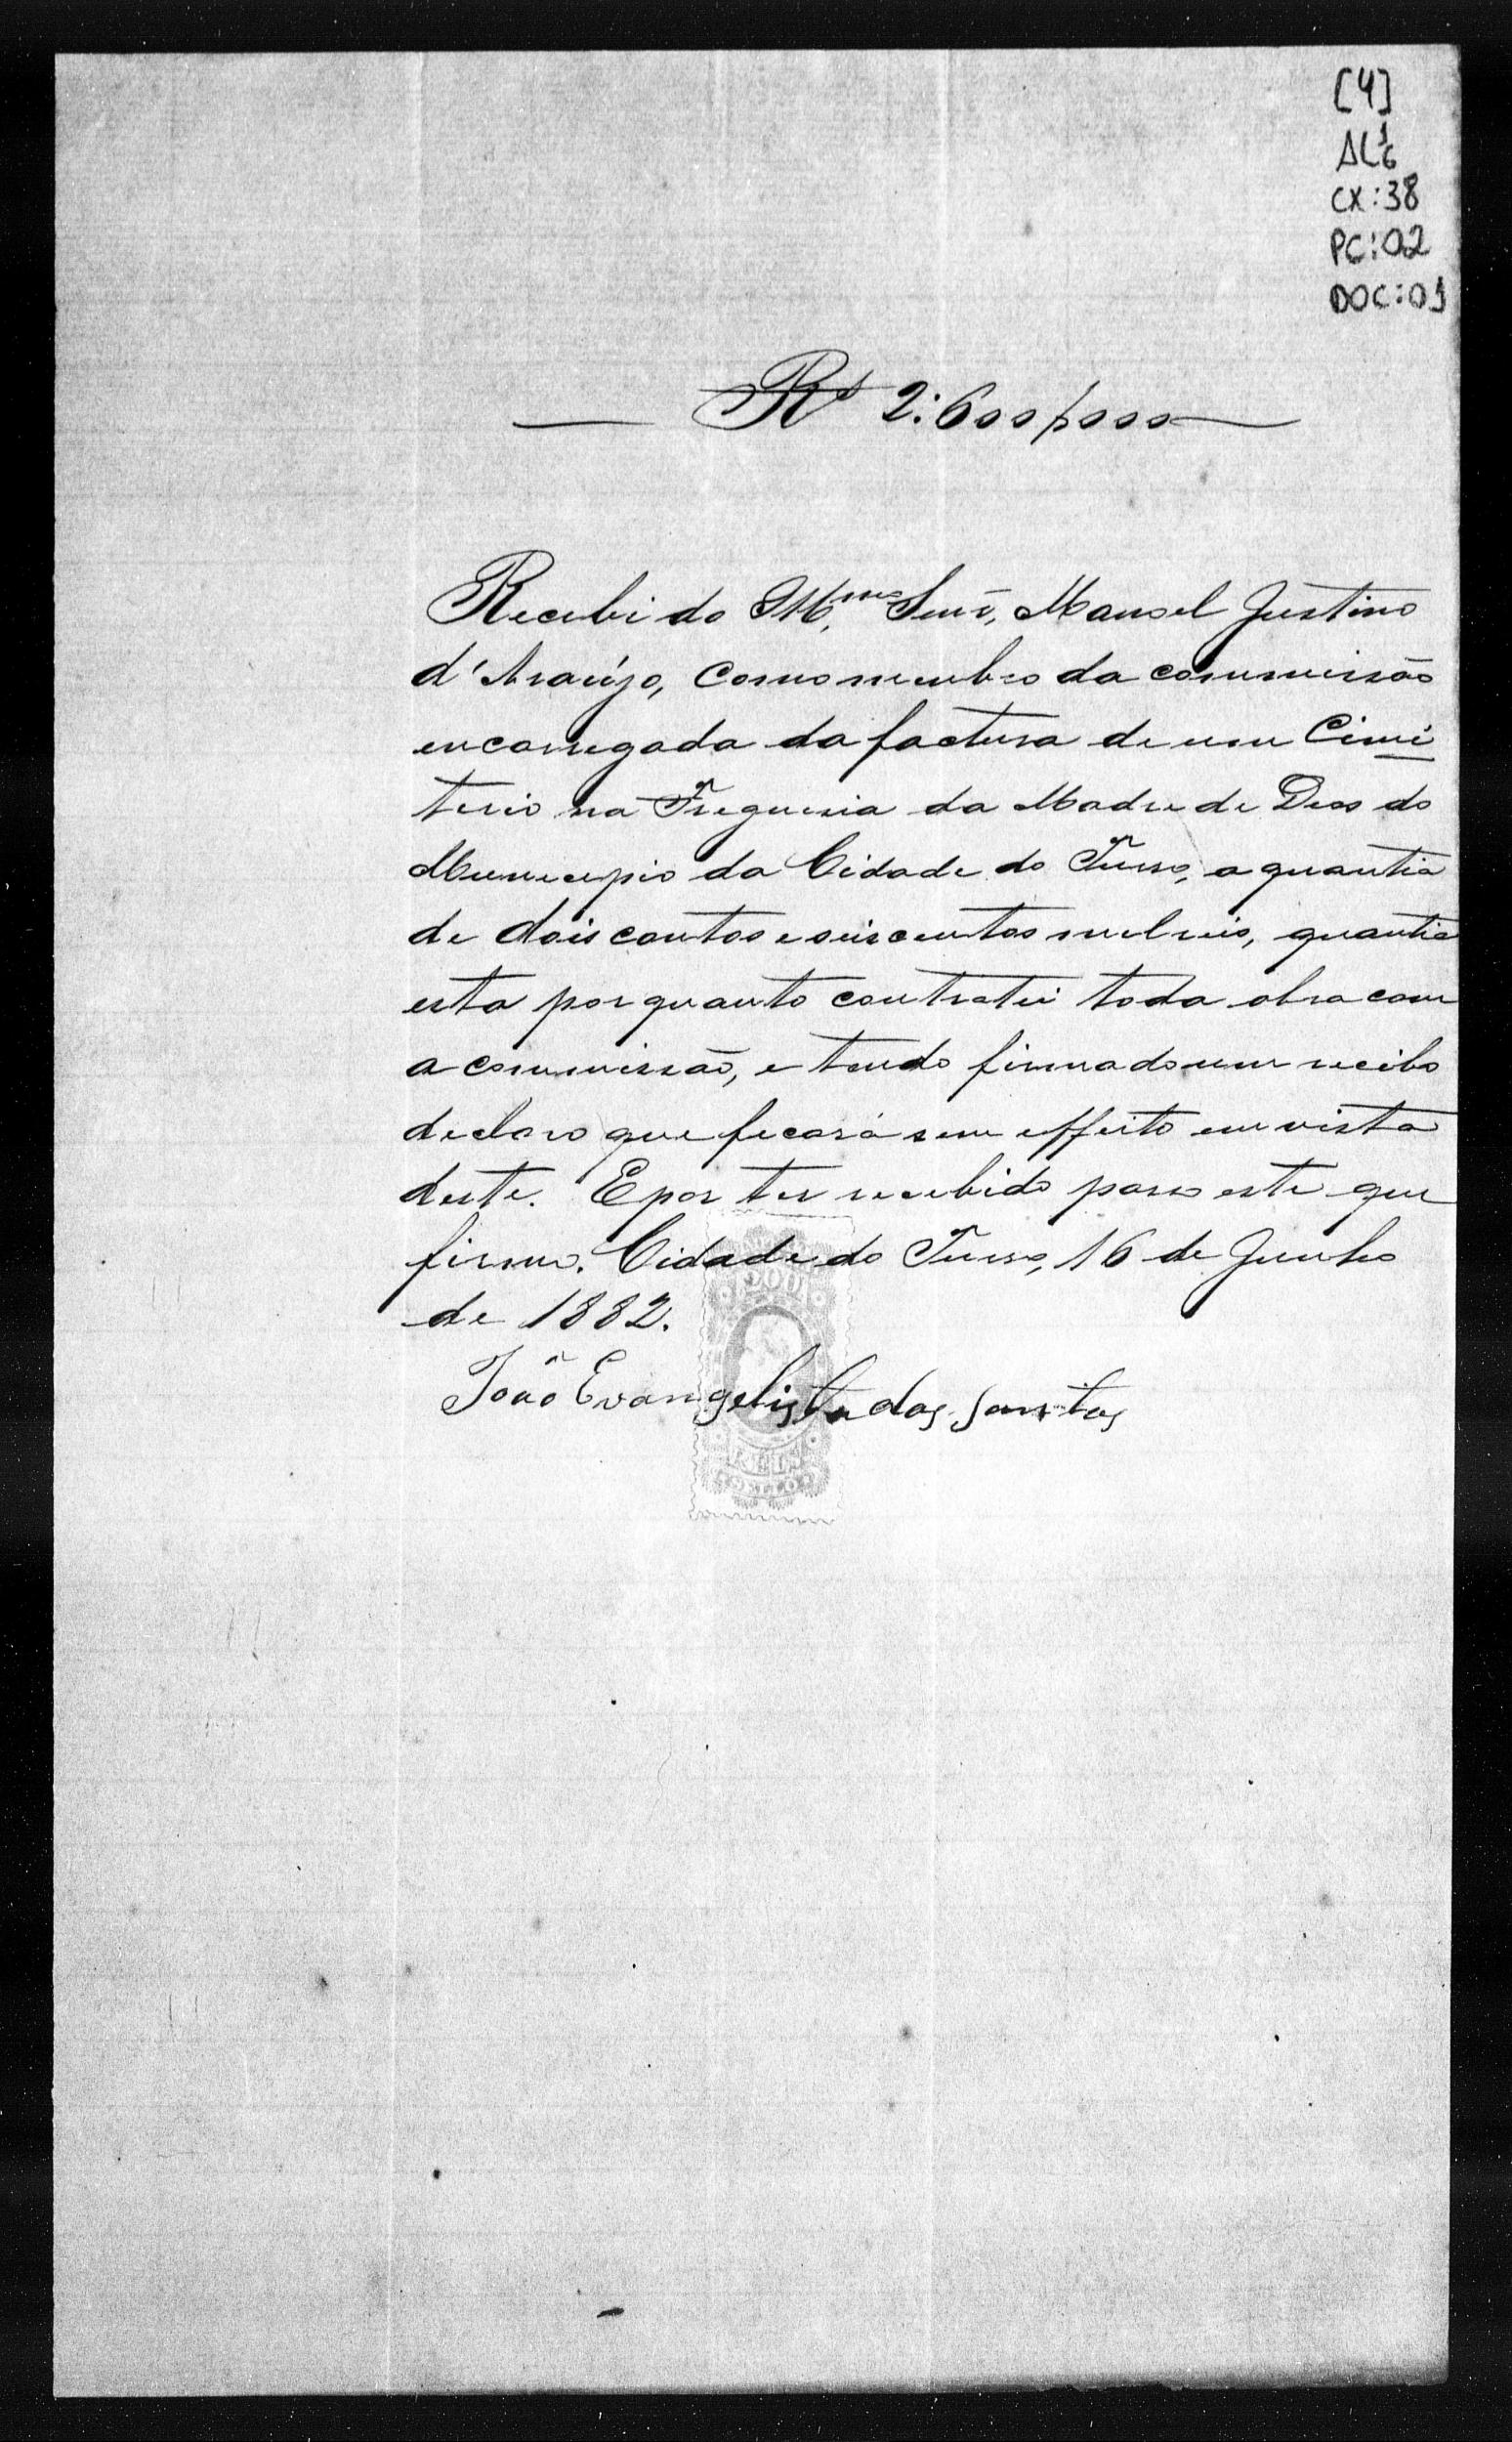 [4]
AL 1/6
CX:38
PC:02
DOC:01
Rs 2:600$000
Recebi do Illmo Senr, Manoel Justino
d'Araújo, como membro da commissão
encarregada da factura de um Cimi
terio na Freguesia da Madre de Deos do
Municipio da Cidade do Turso, a quantia
de dois contos e seiscentos mil reis, quantia
esta por quanto contratei toda obra com
a commissão, e tendo firmado um recibo
declaro que ficará sem effeito em vista
deste. E por ter recebido passo este que
firmo. Cidade do Turso, 16 de Junho
de 1882.
João Evangelista dos santos
REIS
SELLO